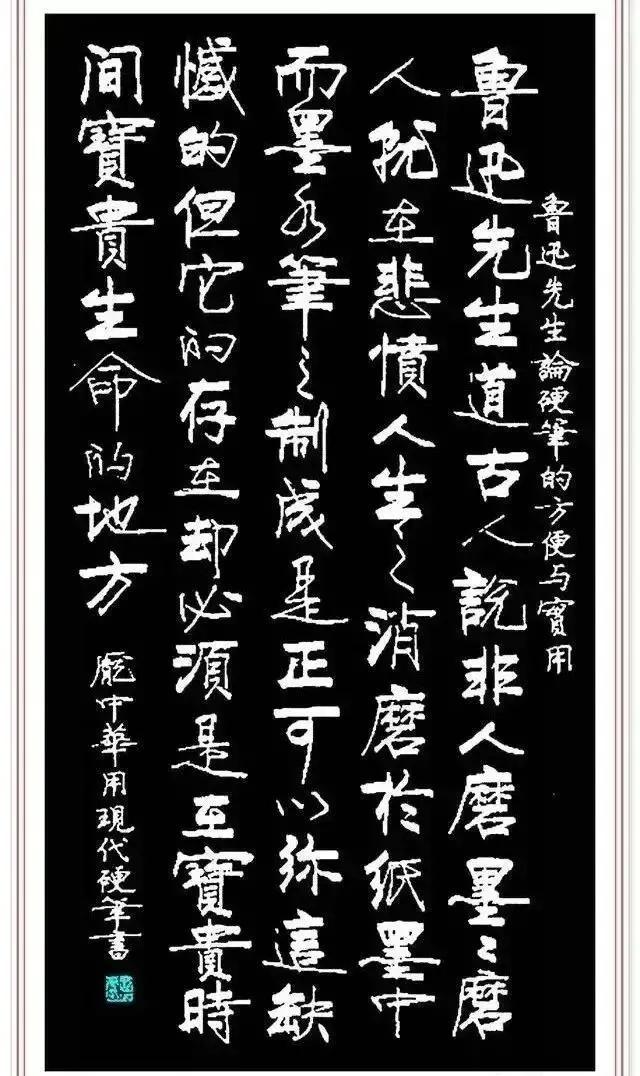 魯迅先生論硬筆的方便与實用
魯迅先生道古人說非人磨墨墨〻磨
人就在悲憤人生之消磨於紙墨中
而墨水筆之制成是正可以弥這缺
憾的但它的存在却必須是在寶貴時
间寶貴生命的地方
龐中華用現代硬筆書